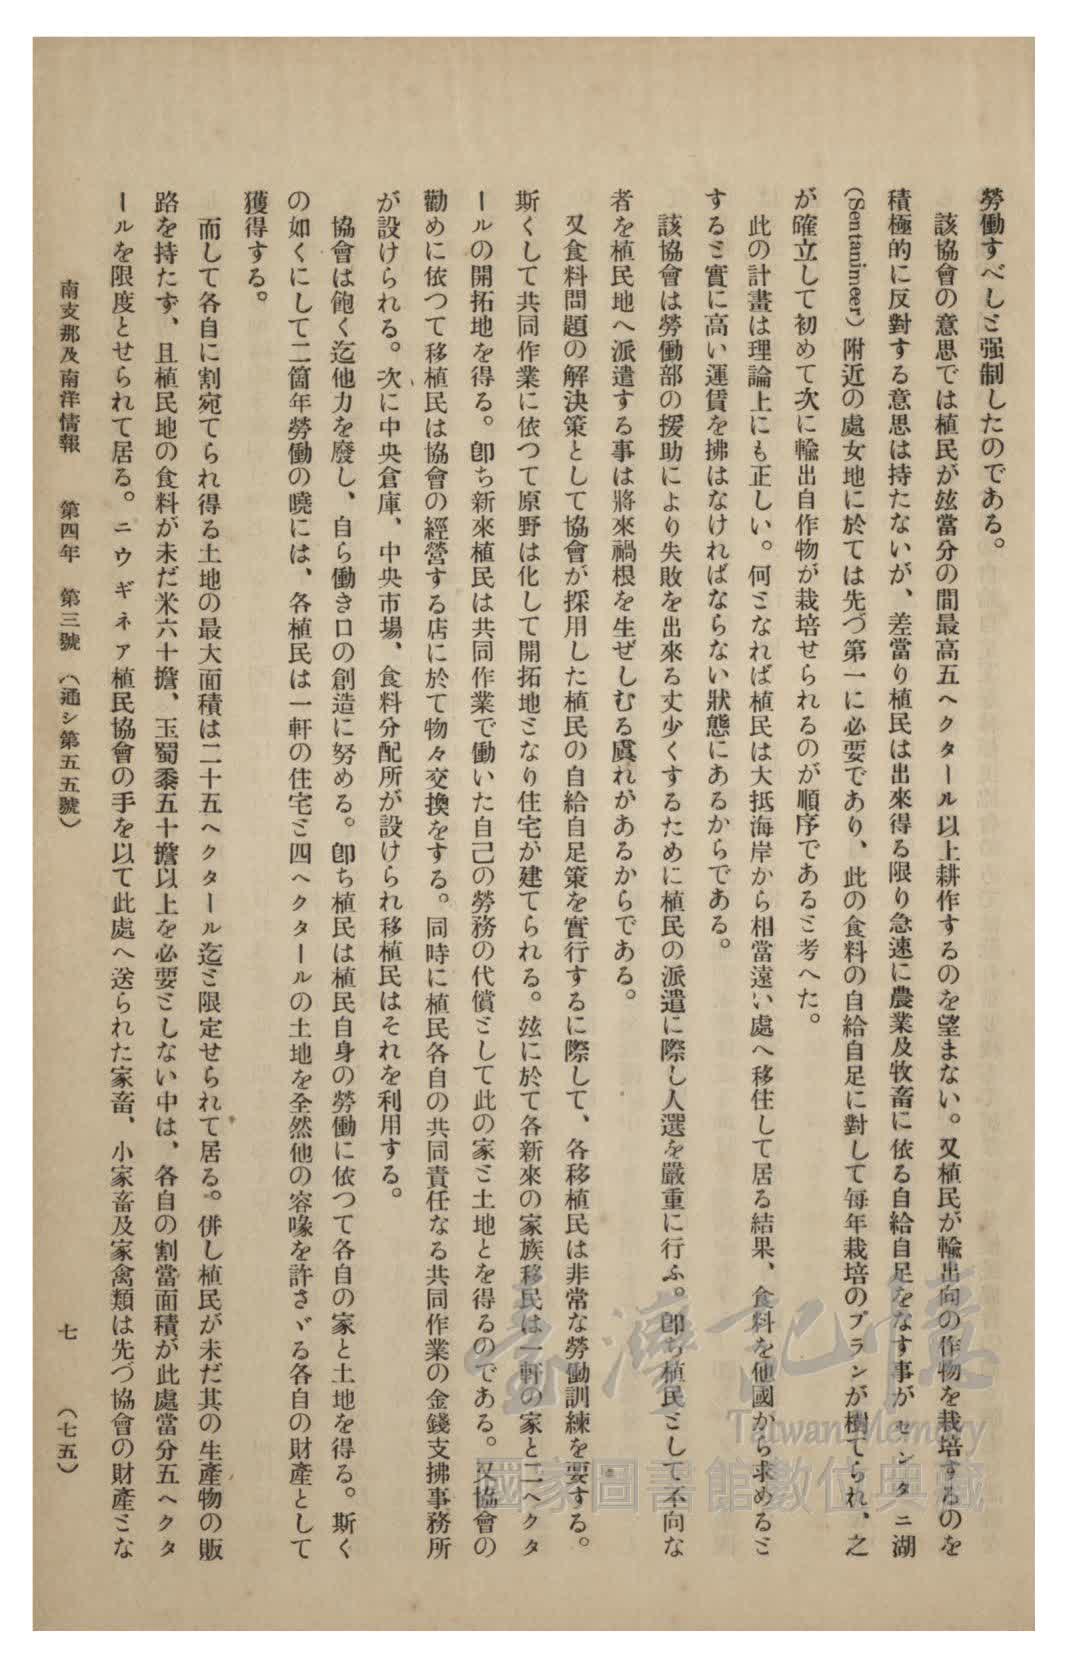 勞働すべしと强制したのである。
該協會の意思では植民が玆當分の間最高五ヘクタール以上耕作するのを望まない。又植民が輸出向の作物を栽培するのを
積極的に反對する意思は持たないが、差當り植民は出來得る限り急速に農業及牧畜に依る自給自足をなす事がセンタニ湖
(Sentanimeer)附近の處女地に於ては先づ第一に必要であり、此の食料の自給自足に對して每年栽培のプランが樹てられ、之
が確立して初めて次に輸出自作物が栽培せられるのが順序であると考へた。
此の計畫は理論上にも正しい。何となれば植民は大抵海岸から相當遠い處へ移住して居る結果、食料を他國から求めると
すると實に高い運賃を拂はなければならない狀態にあるからである。
該協會は勞働部の援助により失敗を出來る丈少くするために植民の派遣に際し人選を嚴重に行ふ。卽ち植民として不向な
者を植民地へ派遣する事は將來禍根を生ぜしむる虞れがあるからである。
又食料問題の解決策として協會が採用した植民の自給自足策を實行するに際して、各移植民は非常な勞働訓練を要する。
斯くして共同作業に依つて原野は化して開拓地となり住宅が建てられる。玆に於て各新來の家族移民は一軒の家と二ヘクタ
ールの開拓地を得る。卽ち新來植民は共同作業で働いた自己の勞務の代償として此の家と土地とを得るのである。又協會の
勸めに依つて移植民は協會の經營する店に於て物々交換をする。同時に植民各自の共同責任なる共同作業の金錢支拂事務所
が設けられる。次に中央倉庫、中央市場、食料分配所が設けられ移植民はそれを利用する。
協會は飽く迄他力を廢し、自ら働き口の創造に努める。卽ち植民は植民自身の勞働に依つて各自の家と土地を得る。斯く
の如くにして二箇年勞働の曉には、各植民は一軒の住宅と四ヘクタールの土地を全然他の容喙を許さゞる各自の財產として
獲得する。
而して各自に割宛てられ得る土地の最大面積は二十五ヘクタール迄と限定せられて居る。併し植民が未だ其の生產物の販
路を持たず、且植民地の食料が未だ米六十擔、玉蜀黍五十擔以上を必要としない中は、各自の割當面積が此處當分五ヘクタ
ールを限度とせられて居る。ニウギネア植民協會の手を以て此處へ送られた家畜、小家畜及家禽類は先づ協會の財產とな
南支那及南洋情報 第四年 第三號 (通シ第五五號) 七 (七五)
臺灣記憶
Taiwan Memory
國家圖書館數位典藏